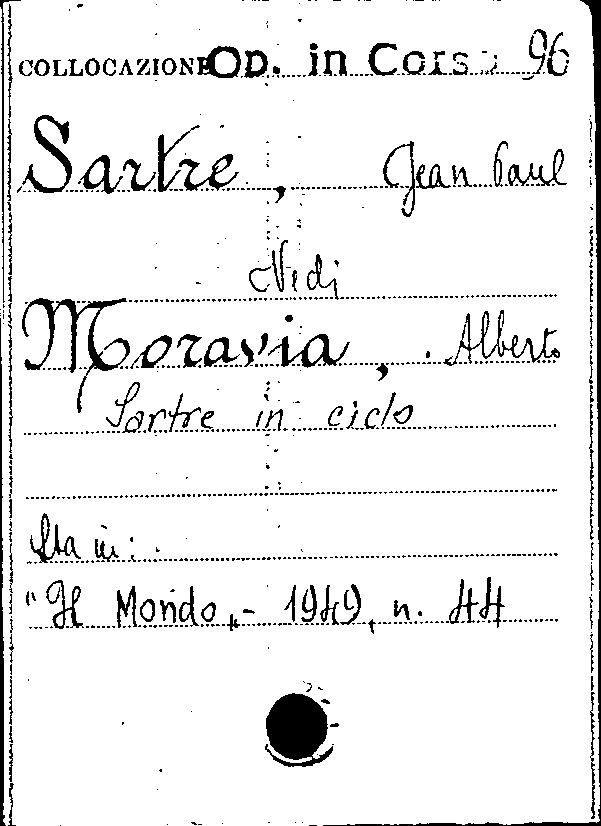 COLLOCAZIONE Op. in Corso 96
Sartre, Jean Paul
Vedi
Moravia, Alberto
Sartre in ciclo
Sta in:
"Il Mondo" - 1949, n. 44